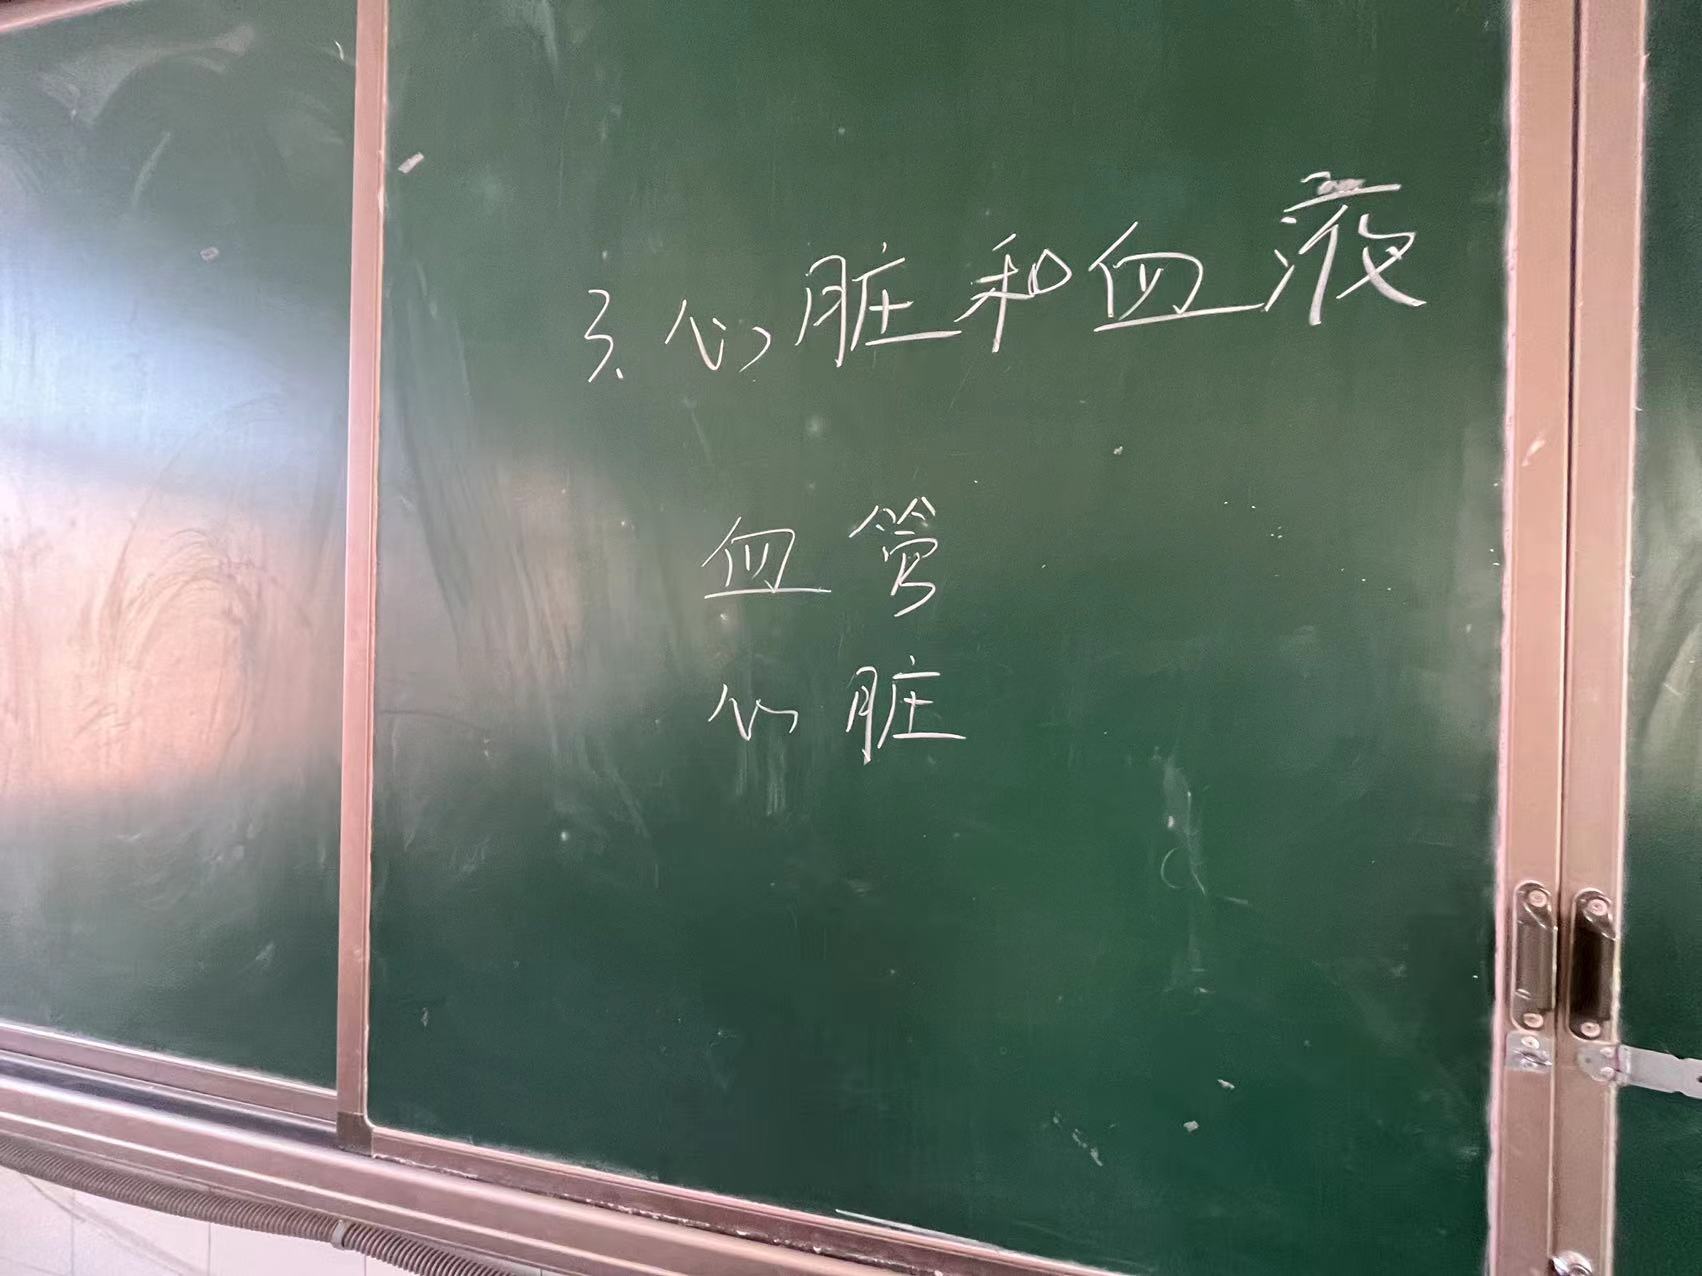 3.心脏和血液
血管
心脏